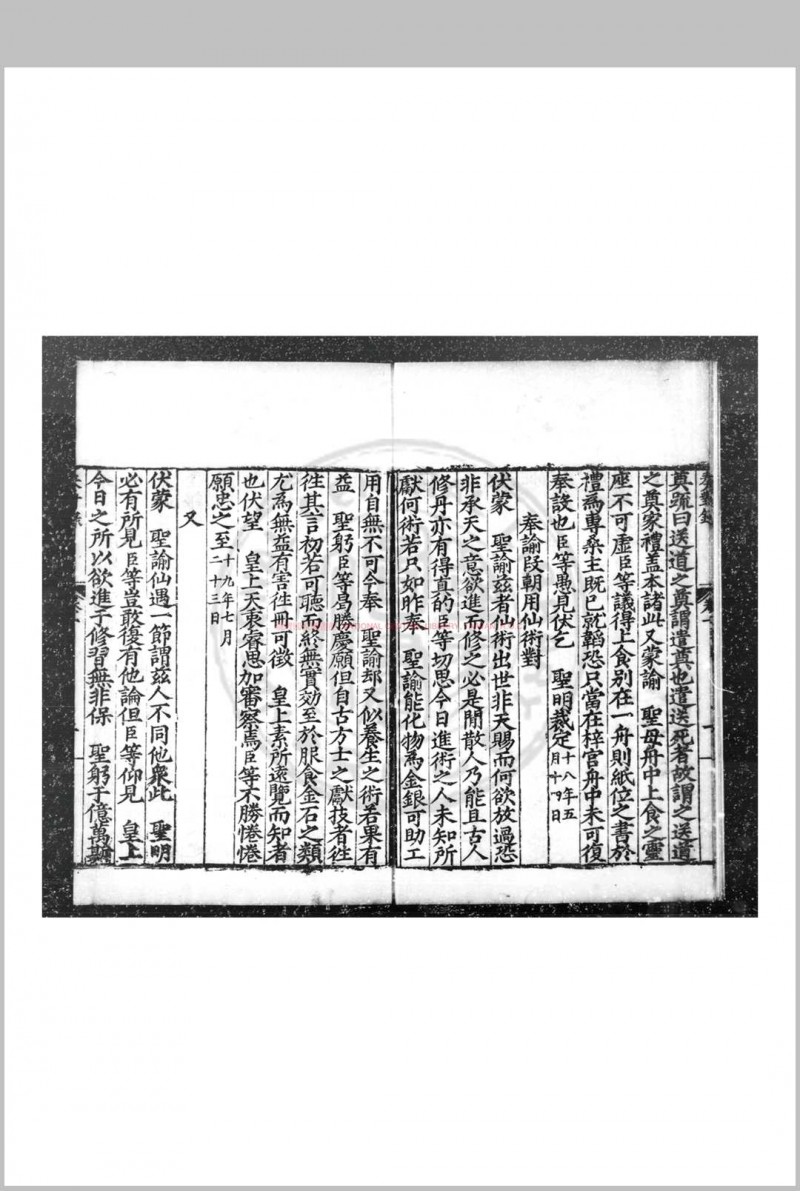 奠疏曰送道之奠謂遣奠也遣送死者故謂之送道
之奠家禮盖本諸此又蒙諭　聖母舟中上食之靈
座不可虛臣等議得上食别在一舟則紙位之書於
禮為專桑主既已就韜恐只當在梓宮舟中未可復
奉設也臣等愚見伏乞　聖明裁定十八年五月十四日
奉諭段朝用仙術對
伏蒙　聖諭兹者仙術出世非天賜而何欲放過恐
非承天之意欲進而修之必是閒散人乃能且古人
修丹亦有得直的臣等切思今日進術之人未知所
獻何術若只如昨奉　聖諭能化物為金銀可助工
用自無不可今奉　聖諭却又似養生之術若果有
益　聖躬臣等曷勝慶願但自古方士之獻技者徃
徃其言初若可聽而終無實効至於服食金石之類
尤為無益有害徃冊可徵　皇上素所遠覽而知者
也伏望　皇上天衷睿思加審察焉臣等不勝惓惓
願忠之至十九年七月二十三日
又
伏蒙　聖諭仙遇一節謂兹人不同他衆此　聖明
必有所見臣等豈敢復有他論但臣等仰見　皇上
今日之所以欲進于修習無非保　聖躬于億萬斯